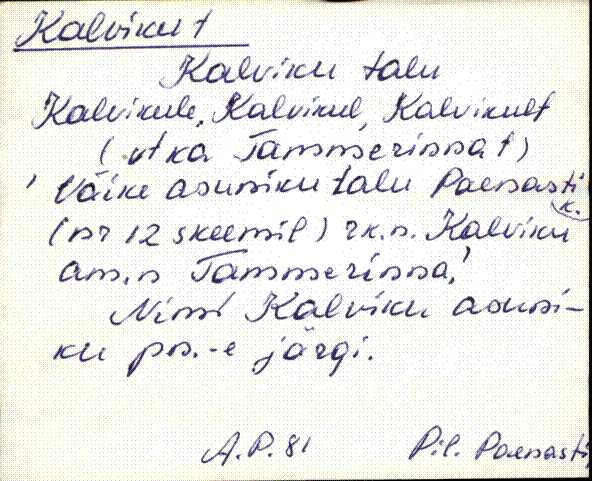 Kalviku1
Kalviku talu
Kalvikule, Kalvikul, Kalvikult
(vt ka Tammerinna1)
' Väike asuniku talu Paenasti k.
(nr 12 skeemil) rk.n. Kalviku
am.n Tammerinna.'
Nimi Kalviku asuni-
ku pn.-e järgi.
A.P. 81 Pil. Paenasti,